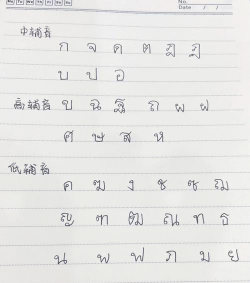 Mo Tu We Th Fr Sa Su
No.
Date / /
中辅音
ก จ ด ต ฎ ฏ
บ ป อ
高辅音 ข ฉ ฐ ถ ผ ฝ
ศ ษ ส ห
低辅音
ค ฆ ง ช ซ ฌ
ญ ฑ ฒ ณ ท ธ
น พ ฟ ภ ม ย